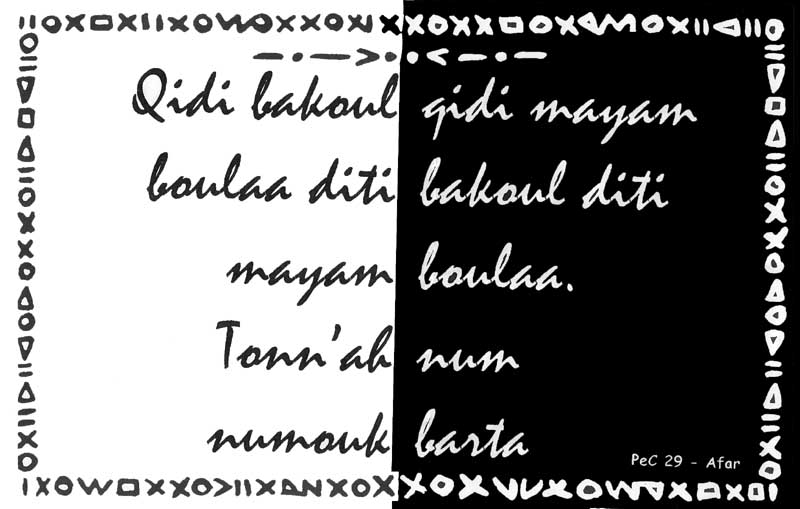 Qidi bakoul qidi mayam
boulaa diti bakoul diti
mayam boulaa.
Tonn'ah num
numouk barta
PeC 29 - Afar